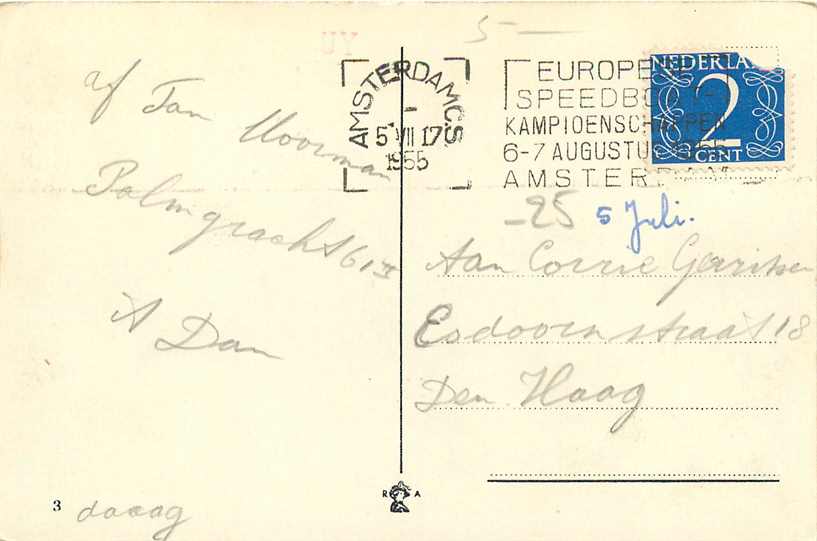 af Jan Moorman
Palmgracht 61 II
A Dam
daaag
3
UY
5 —
AMSTERDAM C.S
5 VII 17
1955
EUROPE
SPEEDBOOT-
KAMPIOENSCHAPPEN
6-7 AUGUSTUS 1955
AMSTERDAM
NEDERLA
2
CENT
-25
5 Juli.
Aan Corrie Gerritsen
Esdoornstraat 18
Den Haag
R A